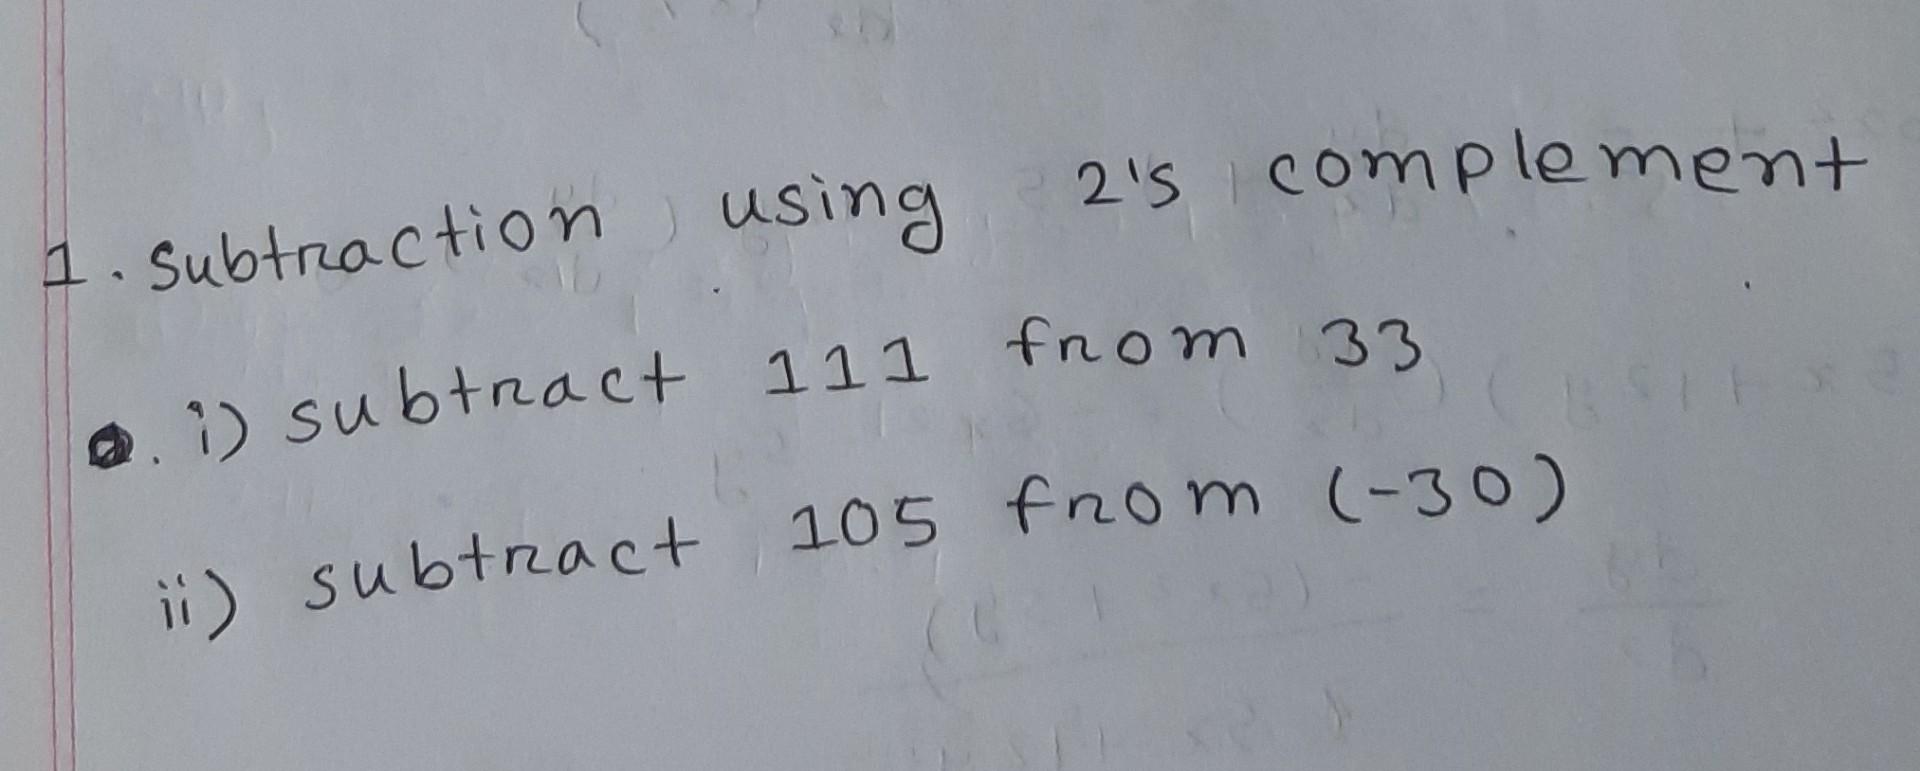 1. subtraction using 2's complement
i) subtract 111 from 33
ii) subtract 105 from (-30)